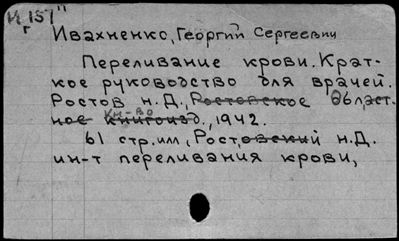 И 157"
г
Ивахненко, Георгий Сергеевич
Переливание крови. Крат-
кое руководство для врачей.
Ростов н.Д., Ростовское Област-
кн-во
ное книгоизд., 1942.
61 стр. илл, Ростовский н.Д.
ин-т переливания крови,